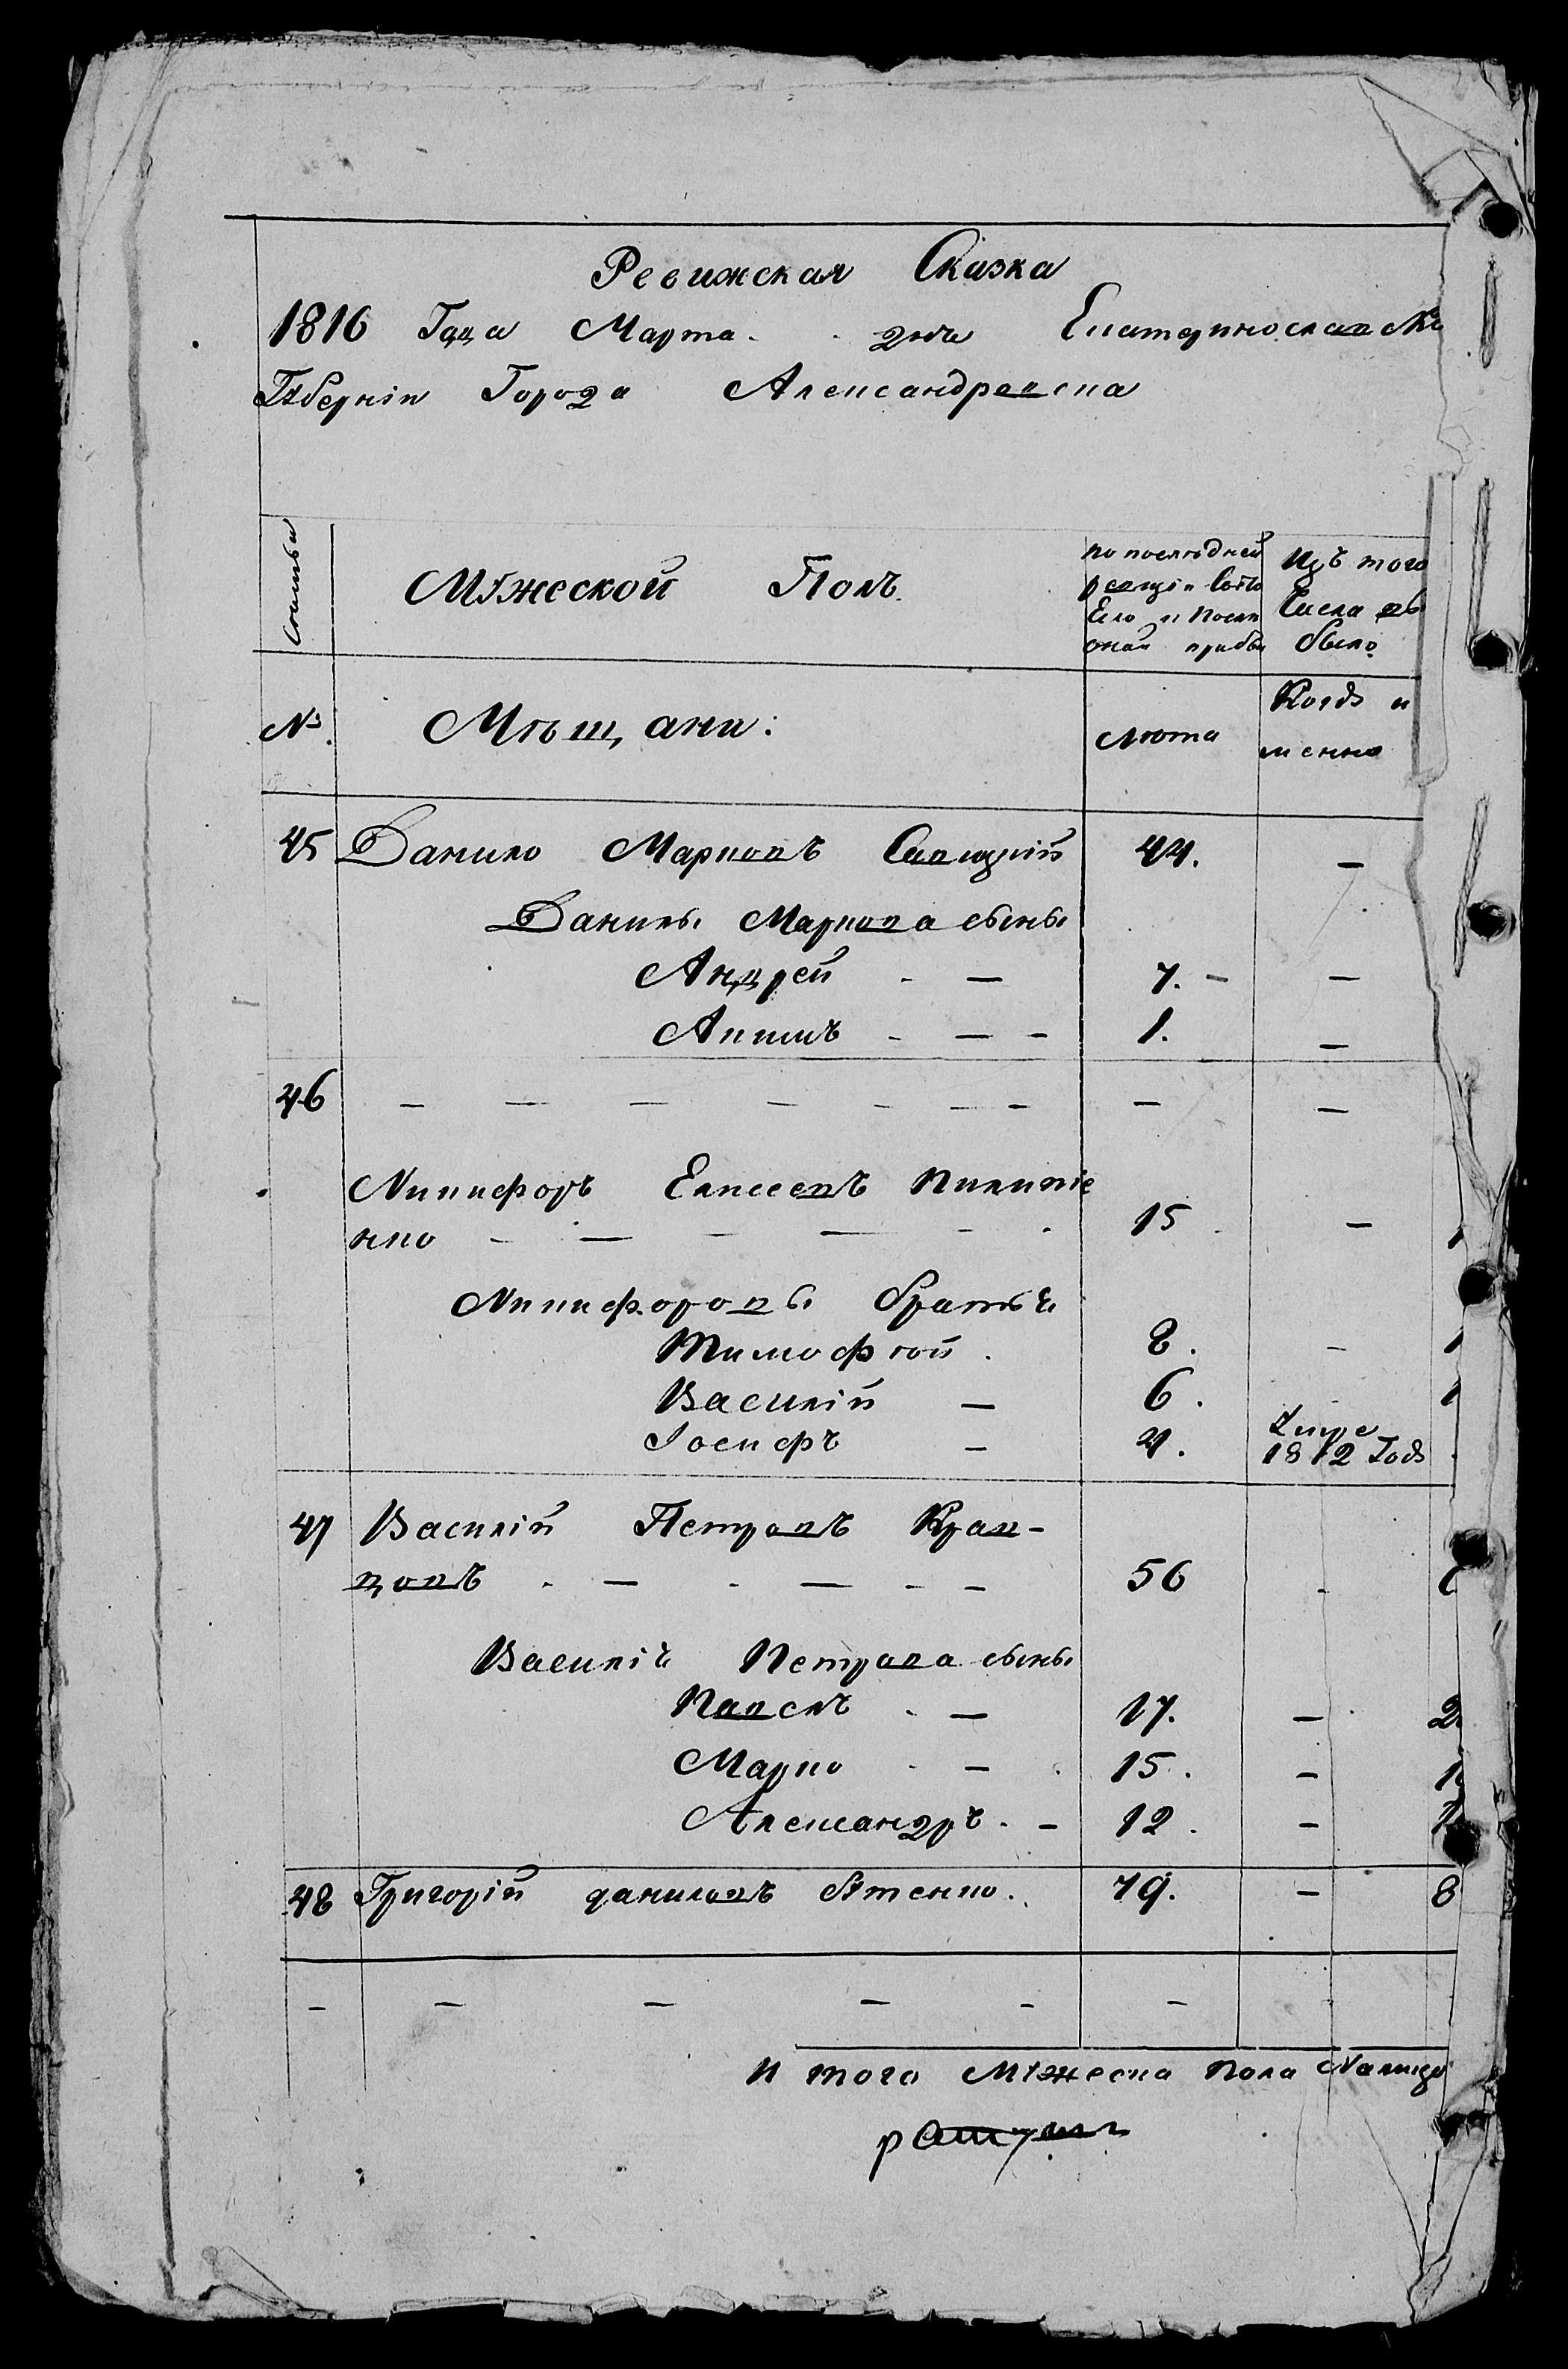 Ревижская Сказка
1816 Года Марта. дня Екатеринославской
Губернiи Города Александровска
Семьи
Мужеской Полъ.
по последней
ревизiи состо
Ело и После
оной прибы
Изъ того
Числа вы
было.
№.
Мѣщане:
лѣта
Когда и
менно
45 Данило Марковъ Савицкiй 44. —
Данилы Маркова сыны
Андрей - — 7. - —
Акимъ - — - 1. —
46 — — — — - — - — —
Никифоръ Елисеевъ Пилипе
нко - — - — - 15 —
Никифоровы братья
Тимофѣй. 8. -
Василiй — 6.
Iосифъ — 4. Умре 1812 Года
47 Василiй Петровъ Крав-
цовъ - — - — - — 56 -
Василiя Петрова сыны
Павелъ - — 17. — 2
Марко - — 15. — 1
Александръ. — 12. — 1
48 Григорiй даниловъ Ятенко. 79. — 8
- — — — - —
И того Мужеска пола Налицо
ратуши